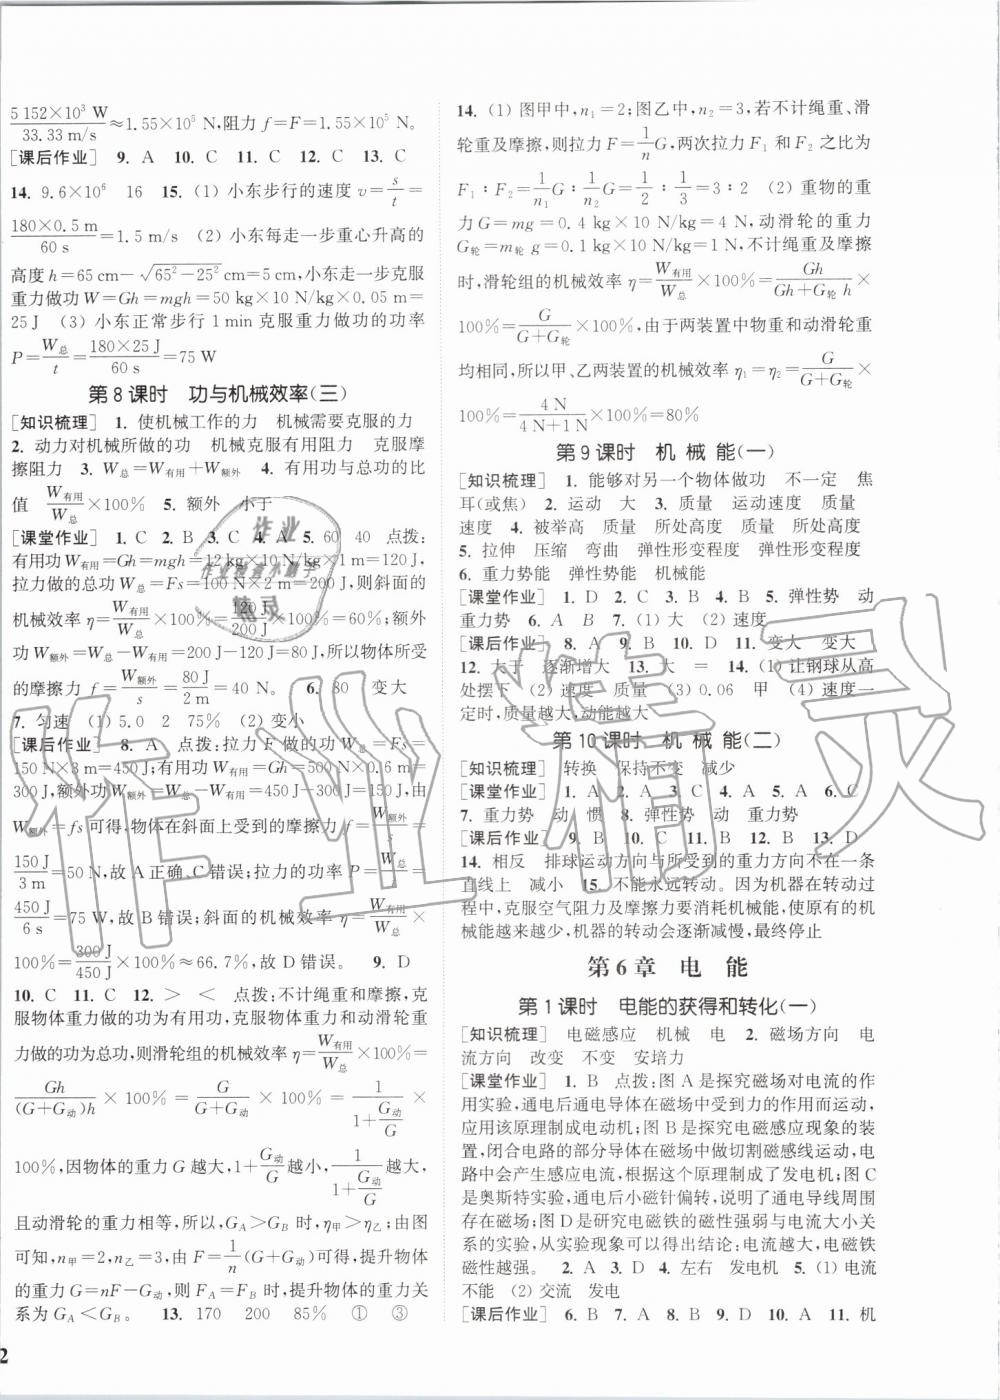 5 152×10³ W/33.33 m/s≈1.55×10⁵ N,阻力 f=F=1.55×10⁵ N。
[课后作业] 9. A 10. C 11. C 12. C 13. C
14. 9.6×10⁶ 16 15. (1) 小东步行的速度 v=s/t=
180×0.5 m/60 s=1.5 m/s (2) 小东每走一步重心升高的
高度 h=65 cm-√65²-25² cm=5 cm,小东走一步克服
重力做功 W=Gh=mgh=50 kg×10 N/kg×0.05 m=
25 J (3) 小东正常步行 1 min 克服重力做功的功率
P=W总/t=180×25 J/60 s=75 W
第 8 课时 功与机械效率(三)
[知识梳理] 1. 使机械工作的力 机械需要克服的力
2. 动力对机械所做的功 机械克服有用阻力 克服摩
擦阻力 3. W总=W有用+W额外 4. 有用功与总功的比
值 W有用/W总×100% 5. 额外 小于
[课堂作业] 1. C 2. B 3. C 4. A 5. 60 40 点拨:
有用功 W有用=Gh=mgh=12 kg×10 N/kg×1 m=120 J,
拉力做的总功 W总=Fs=100 N×2 m=200 J,则斜面的
机械效率 η=W有用/W总×100%=120 J/200 J×100%=60%;额外
功 W额外=W总-W有用=200 J-120 J=80 J,所以物体所受
的摩擦力 f=W额外/s=80 J/2 m=40 N。 6. 80 变大
7. 匀速 (1) 5.0 2 75% (2) 变小
[课后作业] 8. A 点拨:拉力 F 做的功 W总=Fs=
150 N×3 m=450 J;有用功 W有用=Gh=500 N×0.6 m=
300 J,额外功 W额外=W总-W有用=450 J-300 J=150 J,由
W额外=fs 可得,物体在斜面上受到的摩擦力 f=W额外/s=
150 J/3 m=50 N,故 A 正确、C 错误;拉力的功率 P=W总/t=
450 J/6 s=75 W,故 B 错误;斜面的机械效率 η=W有用/W总×
100%=300 J/450 J×100%≈66.7%,故 D 错误。 9. D
10. C 11. C 12. > < 点拨:不计绳重和摩擦,克
服物体重力做的功为有用功,克服物体重力和动滑轮重
力做的功为总功,则滑轮组的机械效率 η=W有用/W总×100%
=Gh/(G+G动)h×100%=G/G+G动×100%=1/1+G动/G×
100%,因物体的重力 G 越大,1+G动/G越小,1/1+G动/G越大,
且动滑轮的重力相等,所以,GA>GB 时,η甲>η乙;由图
可知,n甲=2,n乙=3,由 F=1/n(G+G动)可得,提升物体
的重力 G=nF-G动,则 FA=FB 时,提升物体的重力关
系为 GA<GB。 13. 170 200 85% ① ③
2
14. (1) 图甲中,n₁=2;图乙中,n₂=3,若不计绳重、滑
轮重及摩擦,则拉力 F=1/nG,两次拉力 F₁ 和 F₂ 之比为
F₁∶F₂=1/n₁G∶1/n₂G=1/2∶1/3=3∶2 (2) 重物的重
力 G=mg=0.4 kg×10 N/kg=4 N,动滑轮的重力
G轮=m轮 g=0.1 kg×10 N/kg=1 N,不计绳重及摩擦
时,滑轮组的机械效率 η=W有用/W总×100%=Gh/Gh+G轮 h×
100%=G/G+G轮×100%,由于两装置中物重和动滑轮重
均相同,所以甲、乙两装置的机械效率 η₁=η₂=G/G+G轮×
100%=4 N/4 N+1 N×100%=80%
第 9 课时 机 械 能(一)
[知识梳理] 1. 能够对另一个物体做功 不一定 焦
耳(或焦) 2. 运动 大 3. 质量 运动速度 质量
速度 4. 被举高 质量 所处高度 质量 所处高度
5. 拉伸 压缩 弯曲 弹性形变程度 弹性形变程度
6. 重力势能 弹性势能 机械能
[课堂作业] 1. D 2. C 3. B 4. B 5. 弹性势 动
重力势 6. A B 7. (1) 大 (2) 速度
[课后作业] 8. A 9. B 10. D 11. 变大 变大
12. 大于 逐渐增大 13. 大 = 14. (1) 让钢球从高
处摆下 (2) 速度 质量 (3) 0.06 甲 (4) 速度一
定时,质量越大,动能越大
第 10 课时 机 械 能(二)
[知识梳理] 转换 保持不变 减少
[课堂作业] 1. A 2. A 3. C 4. A 5. A 6. C
7. 重力势 动 惯 8. 弹性势 动 重力势
[课后作业] 9. B 10. C 11. B 12. B 13. D
14. 相反 排球运动方向与所受到的重力方向不在一条
直线上 减小 15. 不能永远转动。因为机器在转动过
程中,克服空气阻力及摩擦力要消耗机械能,使原有的机
械能越来越少,机器的转动会逐渐减慢,最终停止
第 6 章 电 能
第 1 课时 电能的获得和转化(一)
[知识梳理] 1. 电磁感应 机械 电 2. 磁场方向 电
流方向 改变 不变 安培力
[课堂作业] 1. B 点拨:图 A 是探究磁场对电流的作
用实验,通电后通电导体在磁场中受到力的作用而运动,
应用该原理制成电动机;图 B 是探究电磁感应现象的装
置,闭合电路的部分导体在磁场中做切割磁感线运动,电
路中会产生感应电流,根据这个原理制成了发电机;图 C
是奥斯特实验,通电后小磁针偏转,说明了通电导线周围
存在磁场;图 D 是研究电磁铁的磁性强弱与电流大小关
系的实验,从实验现象可以得出结论:电流越大,电磁铁
磁性越强。 2. A 3. D 4. 左右 发电机 5. (1) 电流
不能 (2) 交流 发电
[课后作业] 6. B 7. B 8. A 9. D 10. A 11. 机
作业精灵
作业
作业检查小助手
精灵